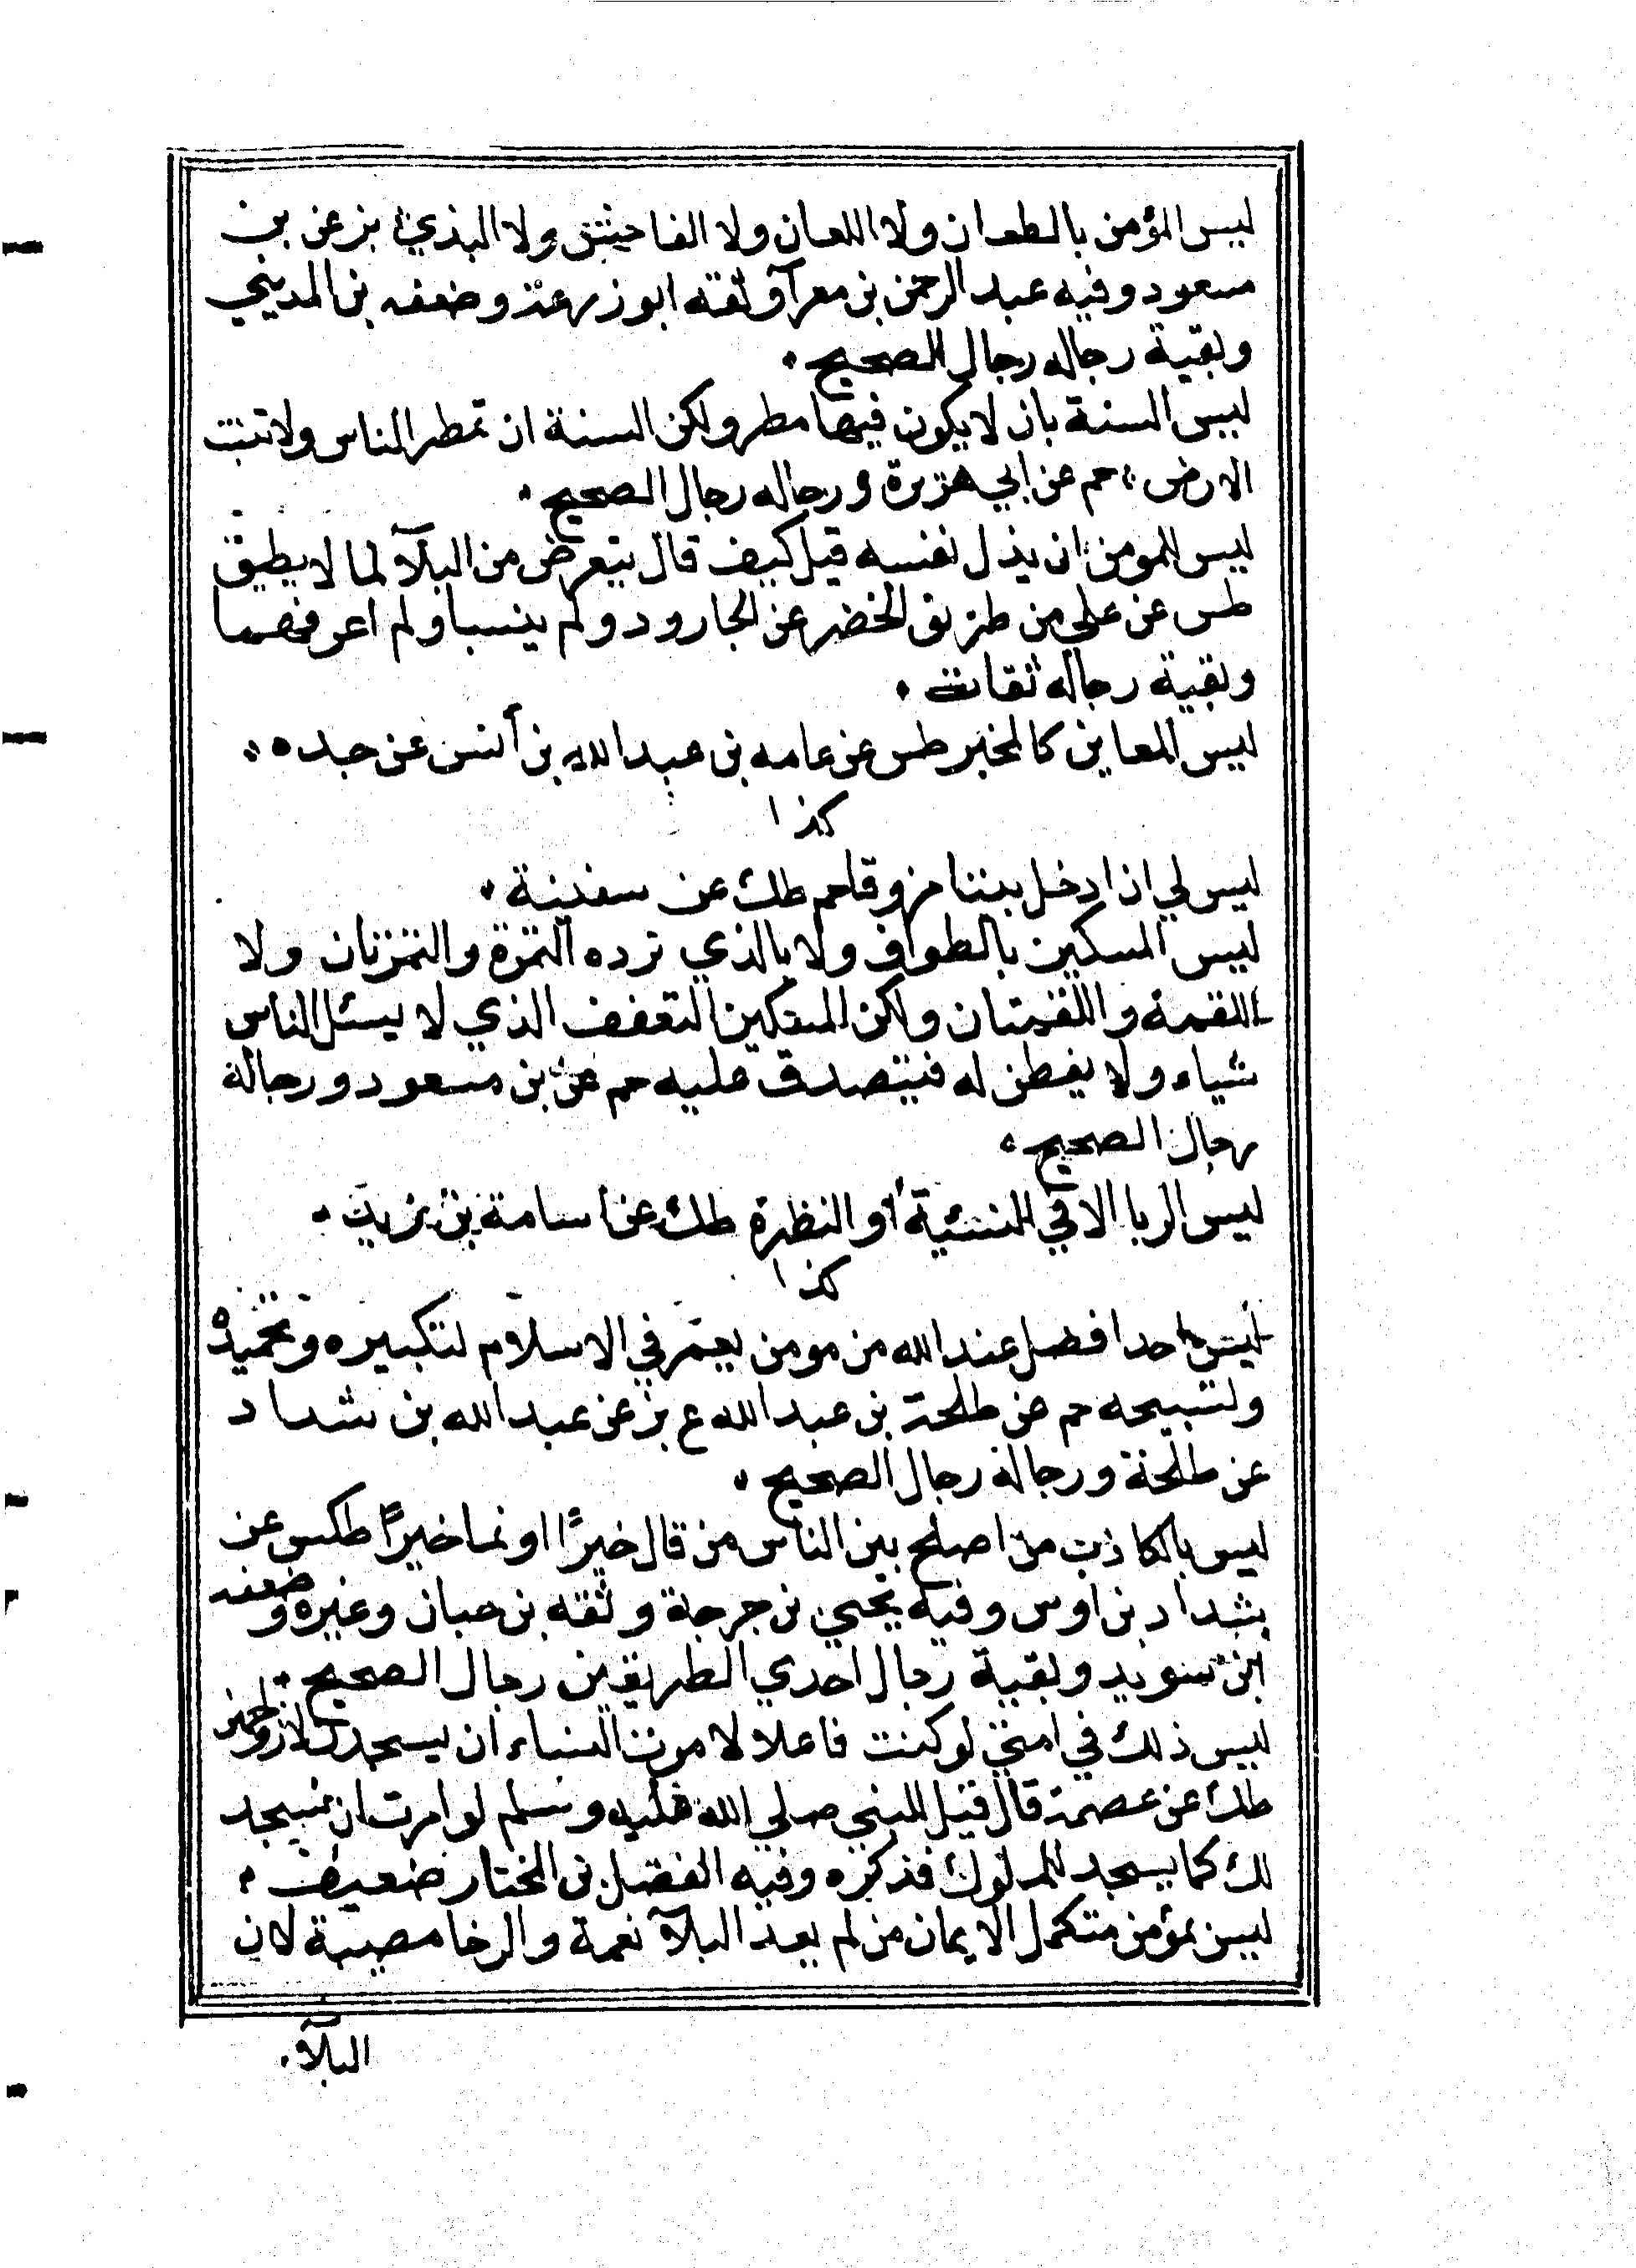 ليس المؤمن بالطعان ولا اللعان ولا الفاحش ولا البذي بز عن بن
مسعود وفيه عبد الرحمن بن معرآ وثقه ابو زرعة وضعفه بن المديني
وبقية رجاله رجال الصحيح
ليس السنة بان لا يكون فيها مطر ولكن السنة ان تمطر الناس ولا تنبت
الارض حم عن ابي هريرة ورجاله رجال الصحيح
ليس للمومن ان يذل نفسه قيل كيف قال يتعرض من البلآ لما لا يطيق
طس عن علي من طريق الخضر عن الجارود ولم ينسبا ولم اعرفهما
وبقية رجاله ثقات
ليس المعاين كالمخبر طس عن عامه بن عبد الله بن أنس عن جده
كذا
ليس لي ان ادخل بيتنا مزوقا حم طك عن سفينة
ليس المسكين بالطواف ولا بالذي ترده التمرة والتمرتان ولا
اللقمة واللقمتان ولكن المسكين المتعفف الذي لا يسئل الناس
شياء ولا يفطن له فيتصدق عليه حم عن بن مسعود ورجاله
رجال الصحيح
ليس الربا الا في النسئية أو النظرة طك عن أسامة بن زيد
كذا
ليس احد افضل عند الله من مومن يعمر في الاسلام لتكبيره وتحميده
ولتسبيحه حم عن طلحة بن عبد الله ع بز عن عبد الله بن شداد
عن طلحة ورجاله رجال الصحيح
ليس بالكاذب من اصلح بين الناس من قال خيرًا او نما خيرًا طكس عن
شداد بن اوس وفيه يحيي بن جرجة وثقه بن حبان وغيره وضعفه
ابن سويد وبقية رجال احدي الطريقين رجال الصحيح
ليس ذلك في امتي لو كنت فاعلا لامرت النساء ان يسجدن لازواجهن
طك عن عصمة قال قيل للنبي صلي الله عليه وسلم لو امرت ان نسجد
لك كما يسجد للملوك فذكره وفيه الفضل بن المختار ضعيف
ليس بمؤمن متكمل الايمان من لم يعد البلآ نعمة والرخا مصيبة لان
البلآ